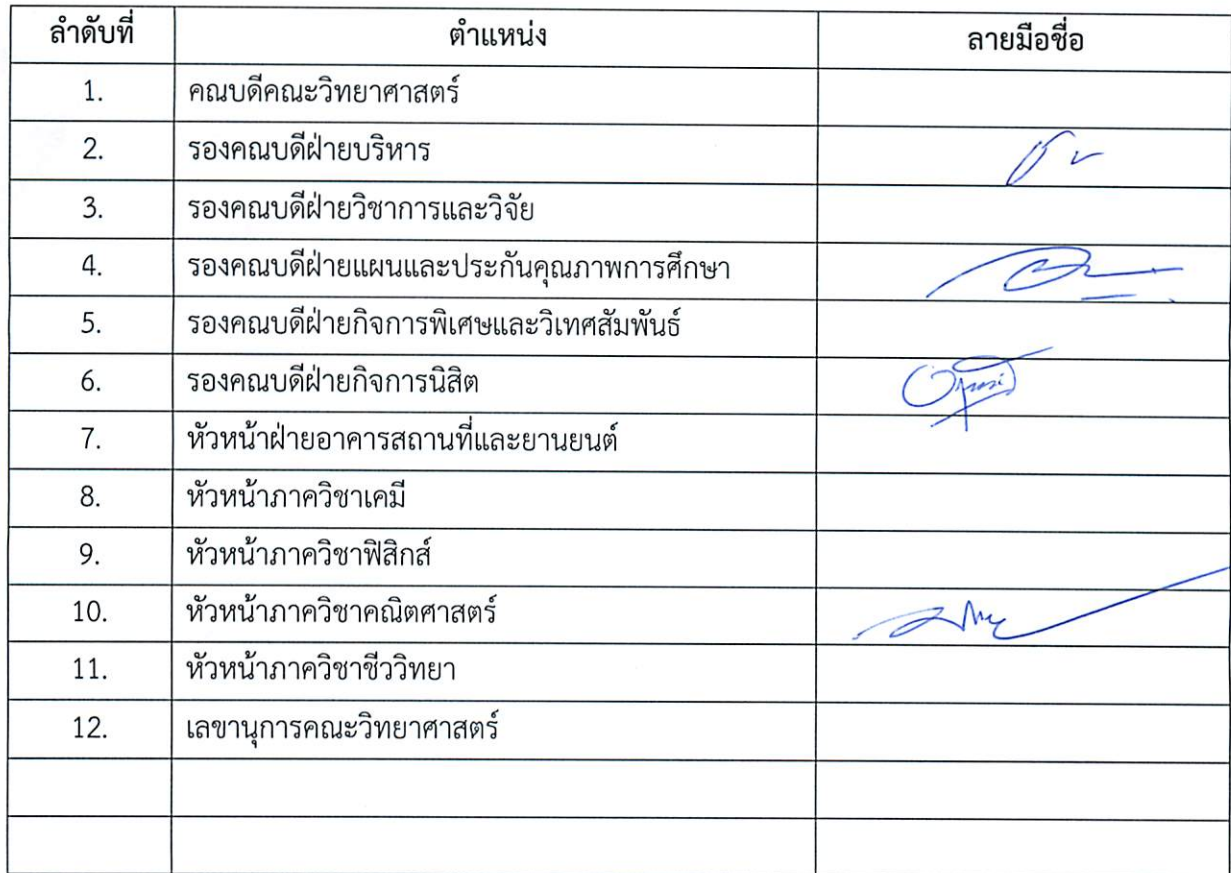 ลำดับที่ ตำแหน่ง ลายมือชื่อ
1. คณบดีคณะวิทยาศาสตร์
2. รองคณบดีฝ่ายบริหาร
3. รองคณบดีฝ่ายวิชาการและวิจัย
4. รองคณบดีฝ่ายแผนและประกันคุณภาพการศึกษา
5. รองคณบดีฝ่ายกิจการพิเศษและวิเทศสัมพันธ์
6. รองคณบดีฝ่ายกิจการนิสิต
7. หัวหน้าฝ่ายอาคารสถานที่และยานยนต์
8. หัวหน้าภาควิชาเคมี
9. หัวหน้าภาควิชาฟิสิกส์
10. หัวหน้าภาควิชาคณิตศาสตร์
11. หัวหน้าภาควิชาชีววิทยา
12. เลขานุการคณะวิทยาศาสตร์